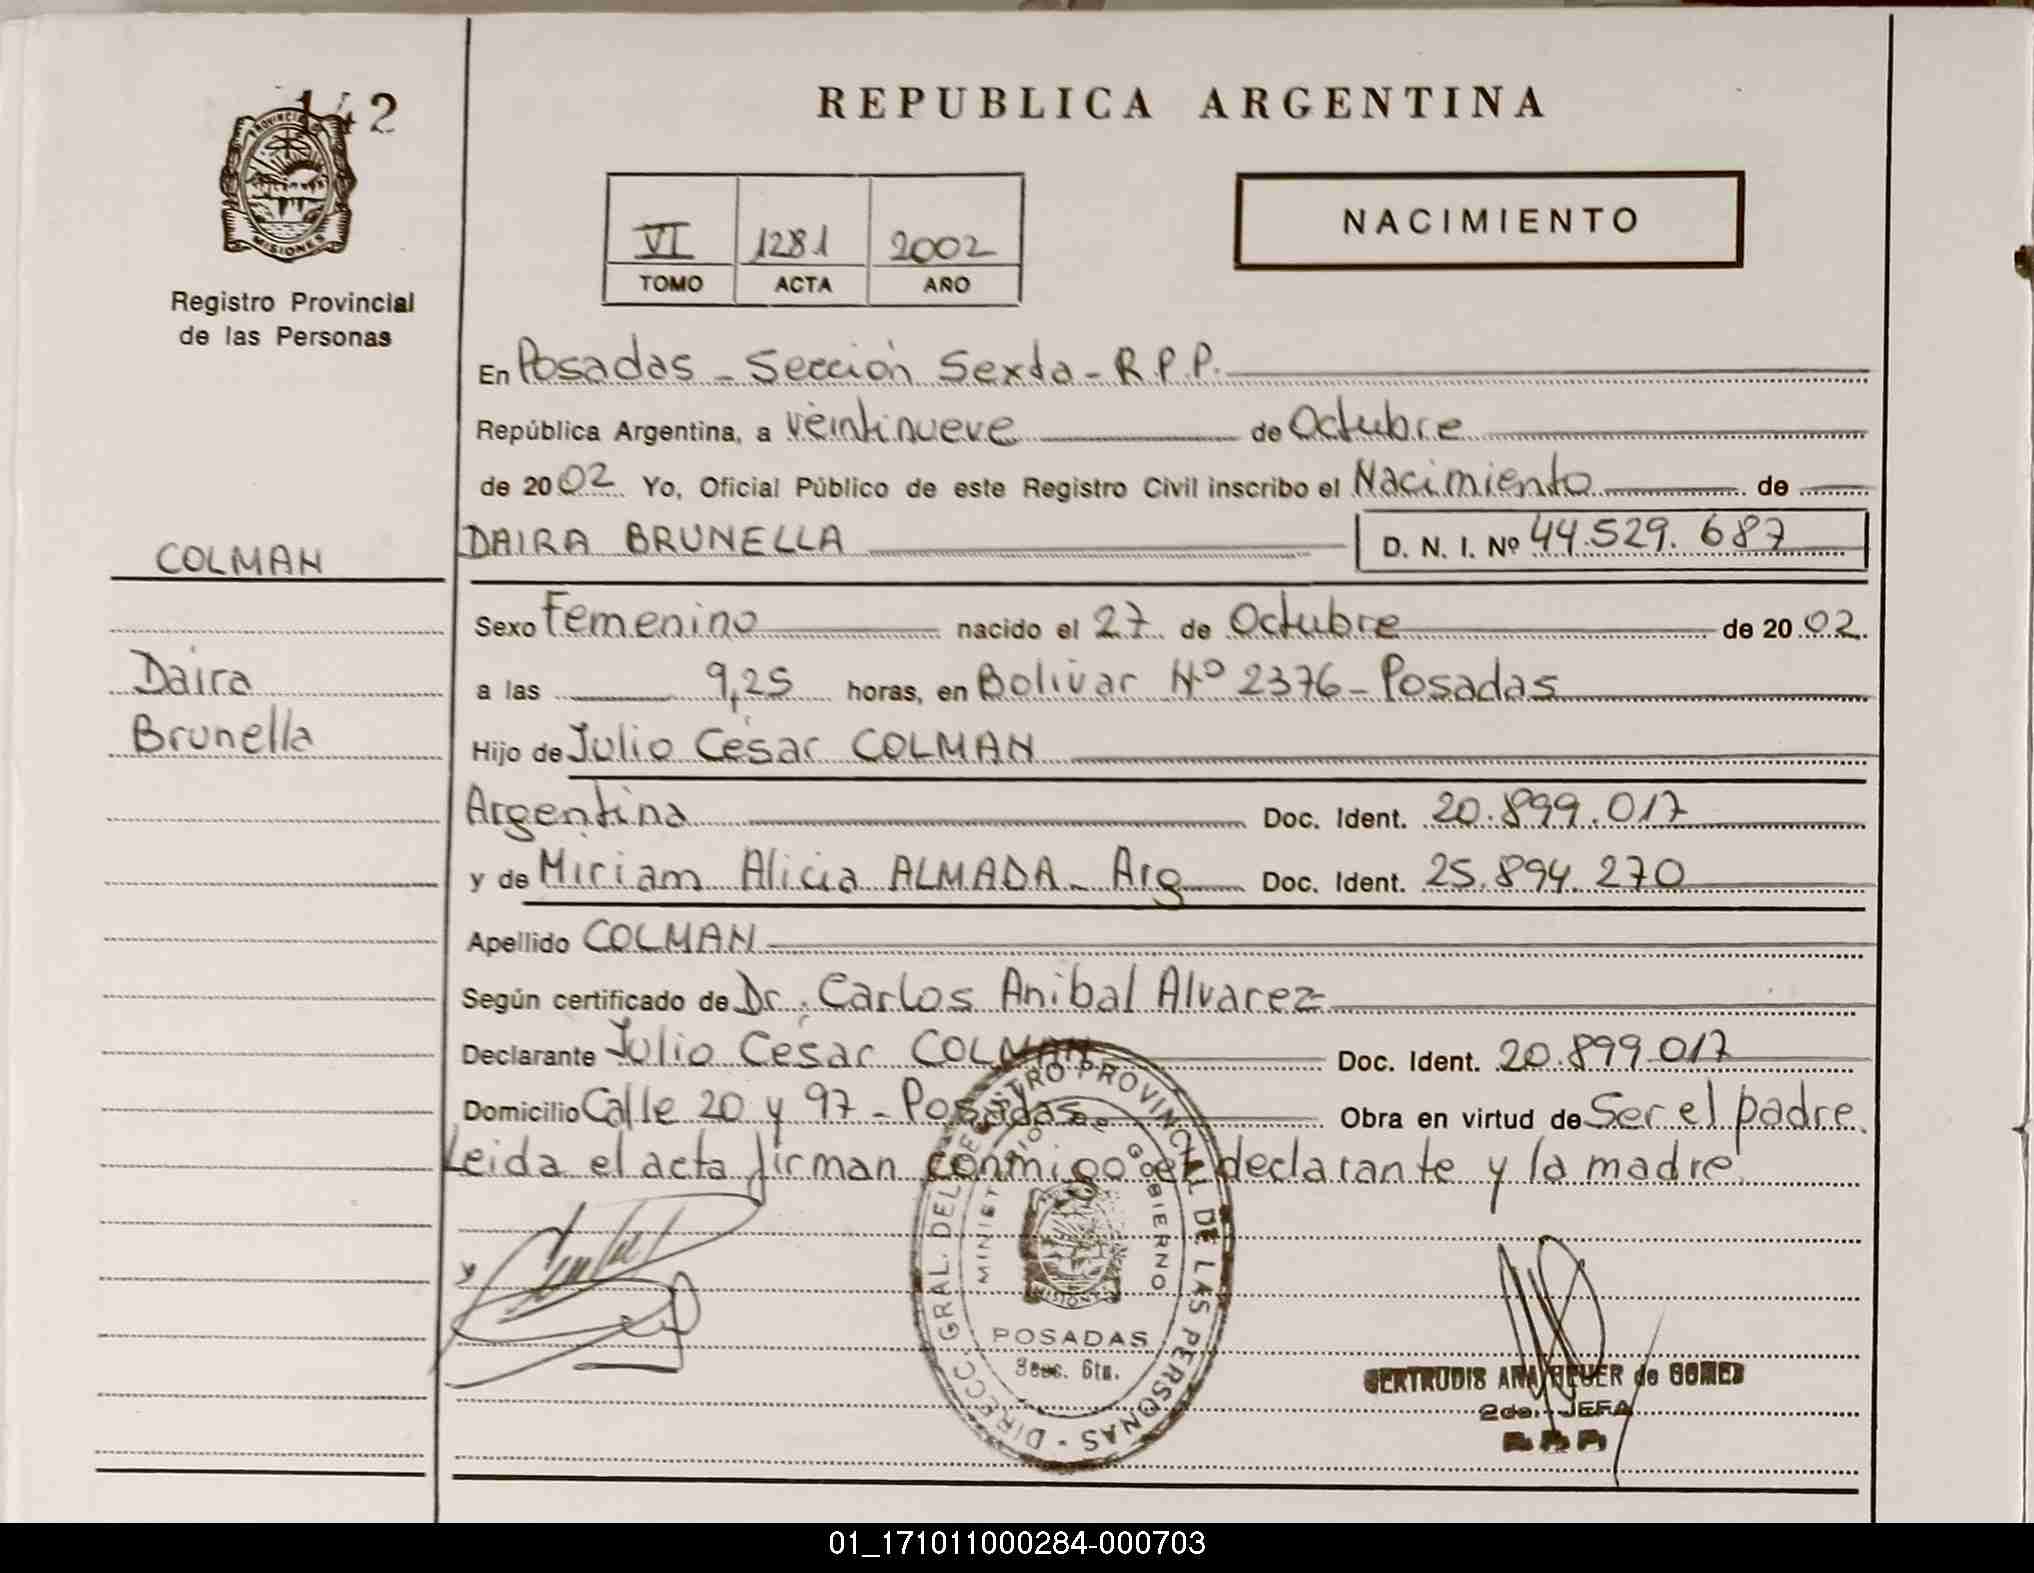 142
PROVINCIA D
MISIONES
Registro Provincial
de las Personas
REPUBLICA ARGENTINA
NACIMIENTO
VI 1281 2002
TOMO ACTA AÑO
En Posadas - Sección Sexta - R.P.P.
República Argentina, a veintinueve de Octubre
de 2002 Yo, Oficial Público de este Registro Civil inscribo el Nacimiento de
COLMAN
DAIRA BRUNELLA D. N. I. Nº 44.529.687
Sexo Femenino nacido el 27 de Octubre de 2002.
Daira
a las 9,25 horas, en Bolívar Nº 2376 - Posadas
Brunella
Hijo de Julio César COLMAN
Argentina Doc. Ident. 20.899.017
y de Miriam Alicia ALMADA - Arg Doc. Ident. 25.894.270
Apellido COLMAN
Según certificado de Dr. Carlos Anibal Alvarez
Declarante Julio César COLMAN Doc. Ident. 20.899.017
Domicilio Calle 20 y 97 - Posadas Obra en virtud de Ser el padre.
Leida el acta firman conmigo el declarante y la madre
DIRECC. GRAL. DEL REGISTRO PROVINCIAL DE LAS PERSONAS -
MINISTERIO DE GOBIERNO
MISIONES
POSADAS
Secc. 6ta.
GERTRUDIS ANA de GOMEZ
2da. JEFA
R.P.P.
01_171011000284-000703